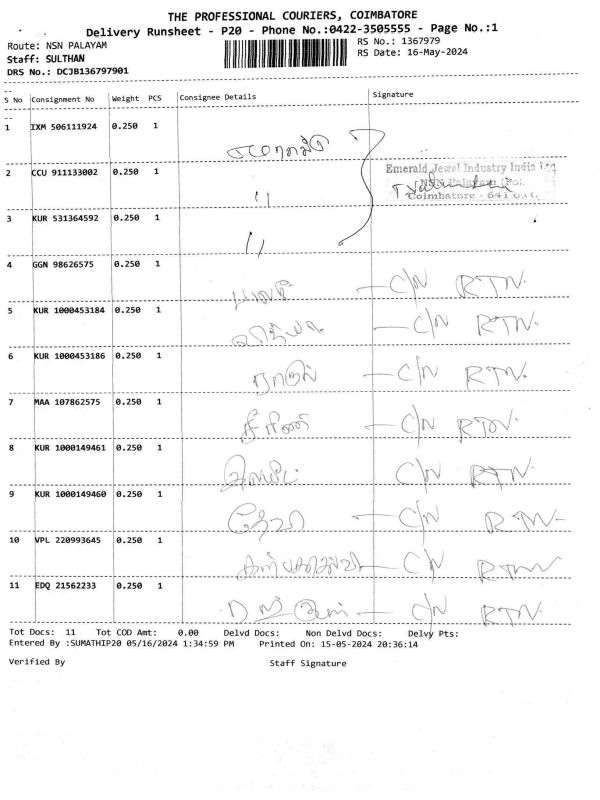 THE PROFESSIONAL COURIERS, COIMBATORE
Delivery Runsheet - P20 - Phone No.:0422-3505555 - Page No.:1
Route: NSN PALAYAM RS No.: 1367979
Staff: SULTHAN RS Date: 16-May-2024
DRS No.: DCJB136797901
S No Consignment No Weight PCS Consignee Details Signature
1 IXM 506111924 0.250 1
2 CCU 911133002 0.250 1 11 Emerald Jewel Industry India Ltd
Coimbatore - 641 031
3 KUR 531364592 0.250 1 11
4 GGN 98626575 0.250 1 — C/N RTN.
5 KUR 1000453184 0.250 1 — C/N RTN.
6 KUR 1000453186 0.250 1 ராகுல் — C/N RTN.
7 MAA 107862575 0.250 1 — C/N RTN.
8 KUR 1000149461 0.250 1 C/N RTN.
9 KUR 1000149460 0.250 1 — C/N RTN
10 VPL 220993645 0.250 1 — C/N RTN
11 EDQ 21562233 0.250 1 — C/N RTN.
Tot Docs: 11 Tot COD Amt: 0.00 Delvd Docs: Non Delvd Docs: Delvy Pts:
Entered By :SUMATHIP20 05/16/2024 1:34:59 PM Printed On: 15-05-2024 20:36:14
Verified By Staff Signature